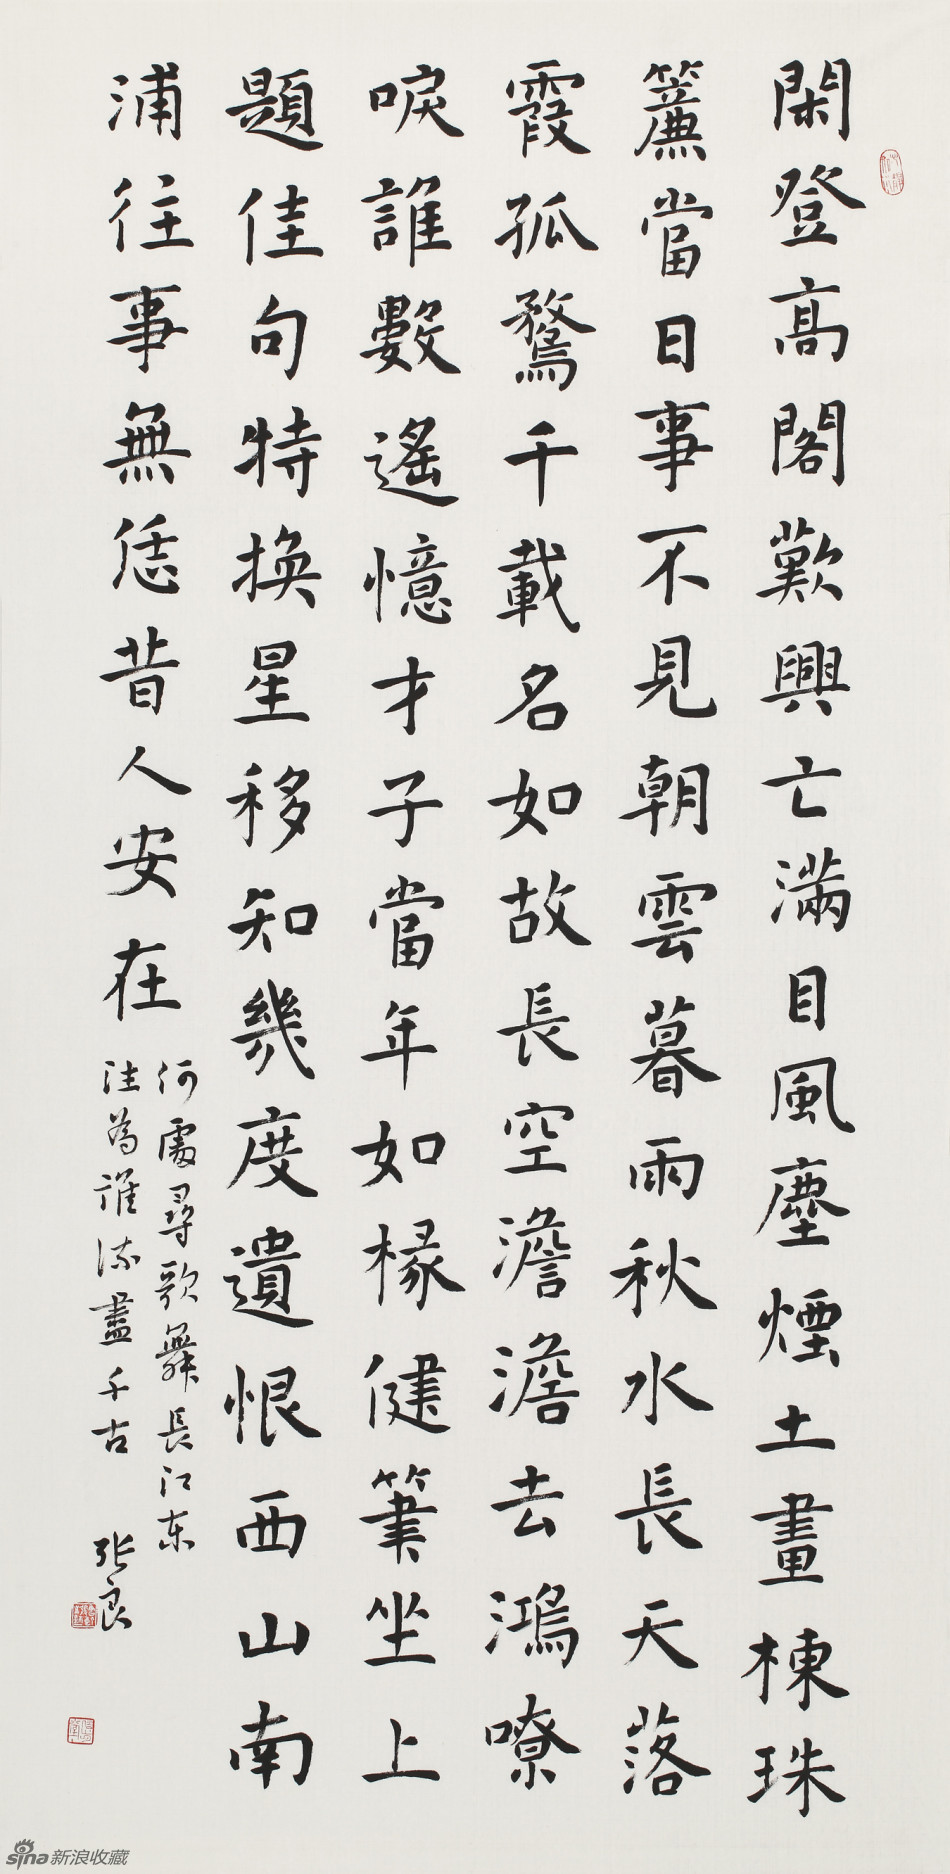 閑登高閣歎興亡滿目風塵煙土畫棟珠
簾當日事不見朝雲暮雨秋水長天落
霞孤鶩千載名如故長空澹澹去鴻嘹
唳誰數遙憶才子當年如椽健筆坐上
題佳句特換星移知幾度遺恨西山南
浦往事無恁昔人安在
何處尋歌舞長江東
注為誰流盡千古
張良
sina新浪收藏